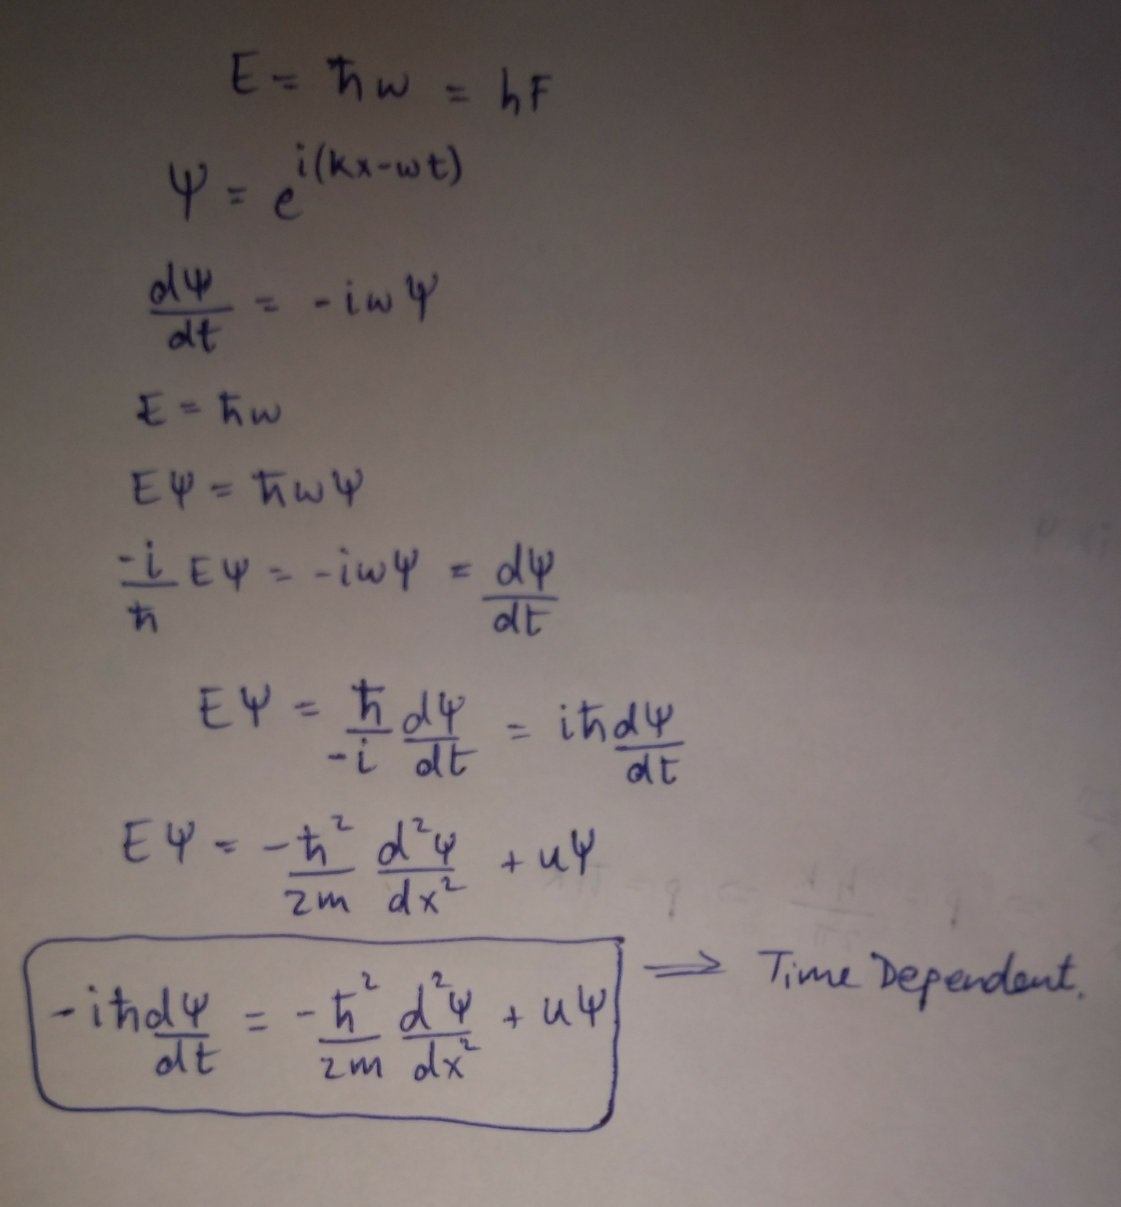 E = ħω = hF
Ψ = e^{i(kx-ωt)}
dΨ/dt = -iωΨ
E = ħω
EΨ = ħωΨ
-i/ħ EΨ = -iωΨ = dΨ/dt
EΨ = ħ/-i dΨ/dt = iħ dΨ/dt
EΨ = -ħ²/2m d²Ψ/dx² + uΨ
-iħ dΨ/dt = -ħ²/2m d²Ψ/dx² + uΨ ⇒ Time Dependent.